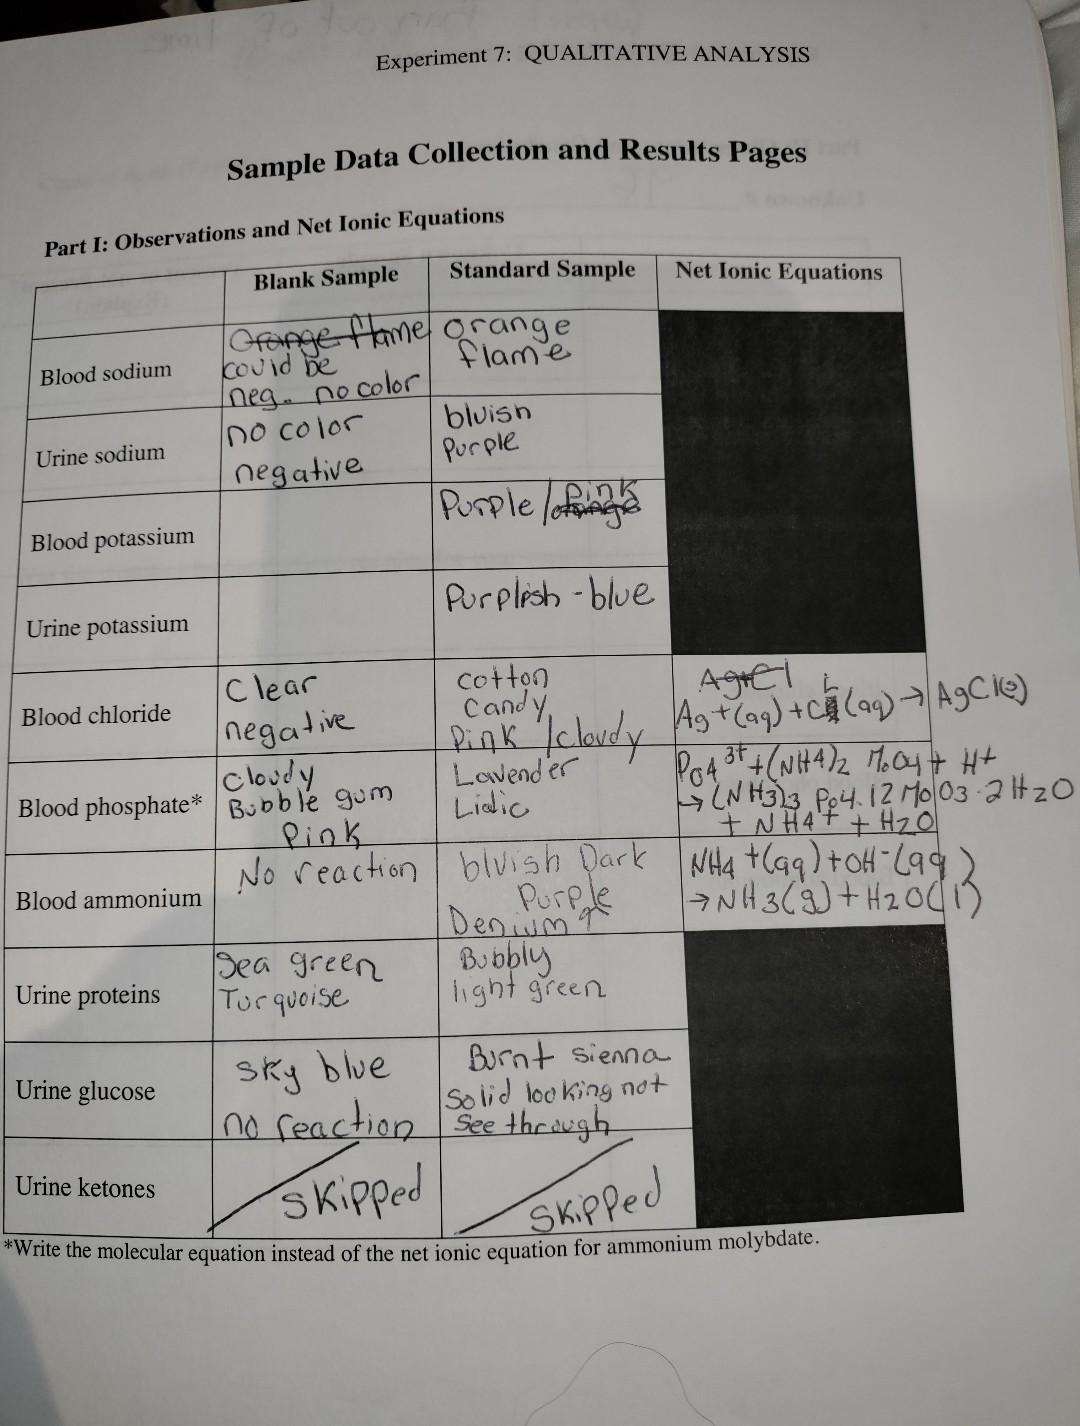 Experiment 7: QUALITATIVE ANALYSIS
Sample Data Collection and Results Pages
Part I: Observations and Net Ionic Equations
Blank Sample
Standard Sample
Net Ionic Equations
Blood sodium
Orange flame
could be
neg. no color
orange
flame
Urine sodium
no color
negative
bluish
Purple
Blood potassium
Purple / Pink
orange
Urine potassium
Purplish - blue
Blood chloride
Clear
negative
cotton
Candy
Pink / cloudy
Ag+Cl
Ag+(aq) + Cl (aq) → AgCl(s)
Blood phosphate*
Cloudy
Bubble gum
Pink
Lavender
Lialic
PO4 3+ + (NH4)2 MoO4 + H+
→ (NH3)3 PO4. 12 MoO3 · 2H2O
+ NH4+ + H2O
Blood ammonium
No reaction
bluish Dark
Purple
Denium
NH4 +(aq) + OH-(aq)
→ NH3(g) + H2O(l)
Urine proteins
Sea green
Turquoise
Bubbly
light green
Urine glucose
sky blue
no reaction
Burnt sienna
Solid looking not
See through
Urine ketones
skipped
skipped
*Write the molecular equation instead of the net ionic equation for ammonium molybdate.